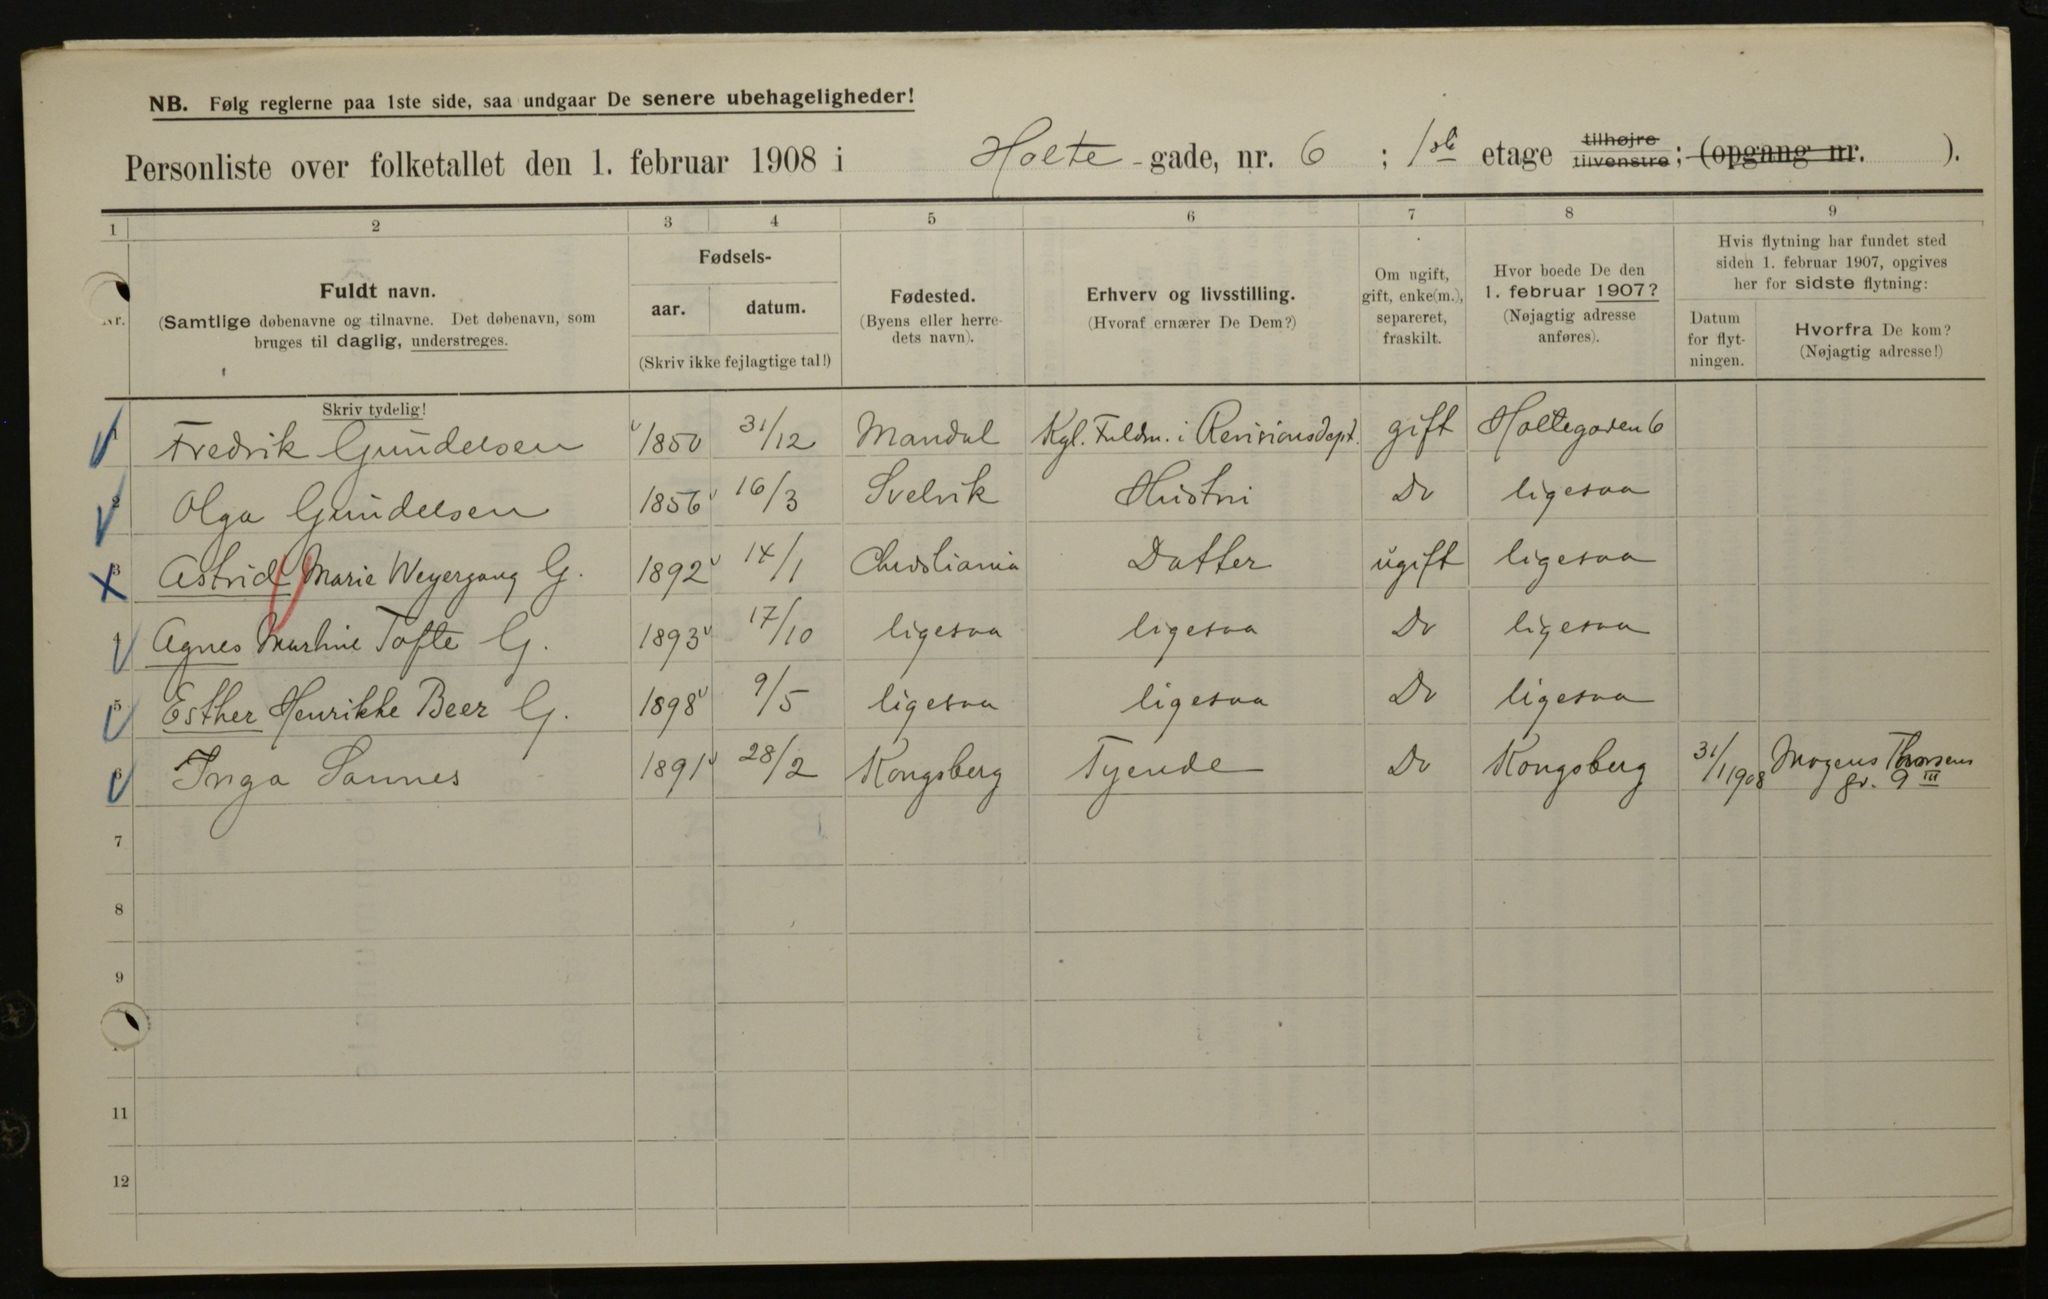 NB. Følg reglerne paa 1ste side, saa undgaar De senere ubehageligheder!
Personliste over folketallet den 1. februar 1908 i Holte-gade, nr. 6 ; 1ste etage tilhøjre tilvenstre ; (opgang nr. ).
1 2 3 4 5 6 7 8 9
Nr.
Fuldt navn.
(Samtlige døbenavne og tilnavne. Det døbenavn, som
bruges til daglig, understreges.
Skriv tydelig!
Fødsels-
aar. datum.
(Skriv ikke fejlagtige tal!)
Fødested.
(Byens eller herre-
dets navn).
Erhverv og livsstilling.
(Hvoraf ernærer De Dem?)
Om ugift,
gift, enke(m.),
separeret,
fraskilt.
Hvor boede De den
1. februar 1907?
(Nøjagtig adresse
anføres).
Hvis flytning har fundet sted
siden 1. februar 1907, opgives
her for sidste flytning:
Datum
for flyt-
ningen.
Hvorfra De kom?
(Nøjagtig adresse!)
1 Fredrik Gundersen 1850 31/12 Mandal Kgl. Fuldm. i Revisionsdept. gift Holtegaden 6
2 Olga Gundersen 1856 16/3 Svelvik Hustru Do ligesaa
3 Astrid Marie Weyergang G. 1892 14/1 Christiania Datter ugift ligesaa
4 Agnes Martine Tofte G. 1893 17/10 ligesaa ligesaa Do ligesaa
5 Esther Henrikke Beer G. 1898 9/5 ligesaa ligesaa Do ligesaa
6 Inga Sannes 1891 28/2 Kongsberg Tyende Do Kongsberg 31/1 1908 Mogens Thorsens
gd. 9 III
7
8
9
11
12